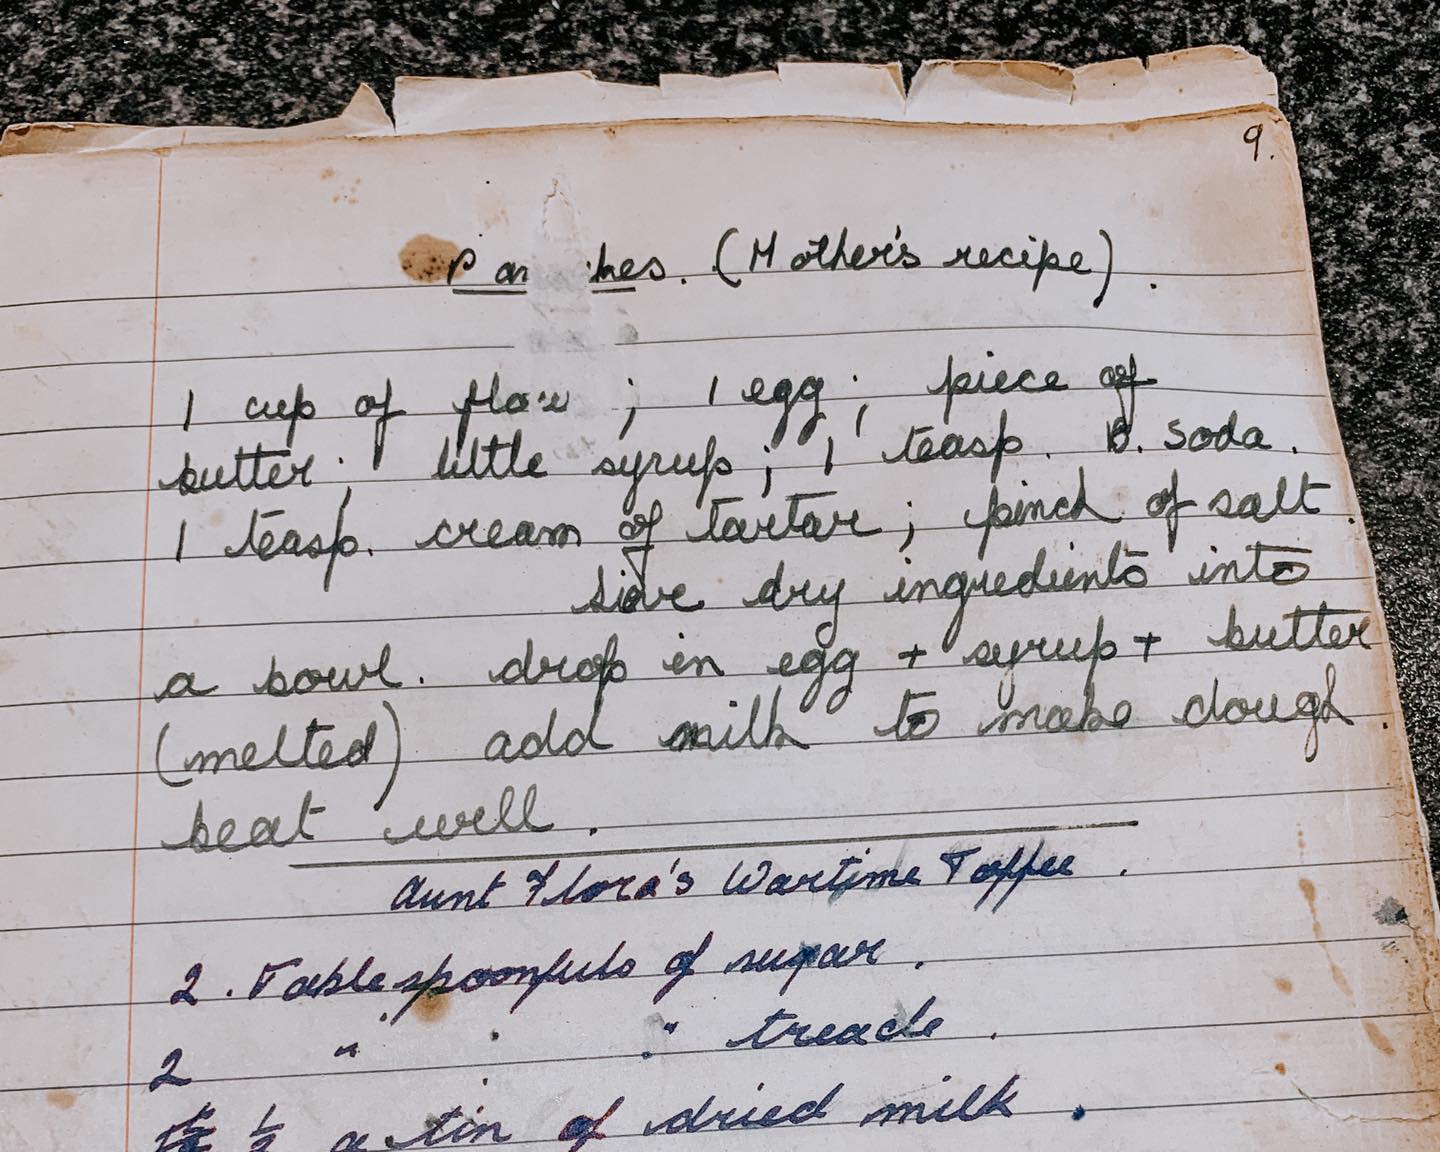 9.
Pancakes. (Mother's recipe).
1 cup of flour ; 1 egg ; piece of
butter ; little syrup ; 1 teasp. B. Soda.
1 teasp. cream of tartar ; pinch of salt.
Sieve dry ingredients into
a bowl. drop in egg + syrup + butter
(melted) add milk to make dough.
beat well.
Aunt Flora's Wartime Toffee.
2. Tablespoonfuls of sugar.
2 " " treacle.
1/2 a tin of dried milk.